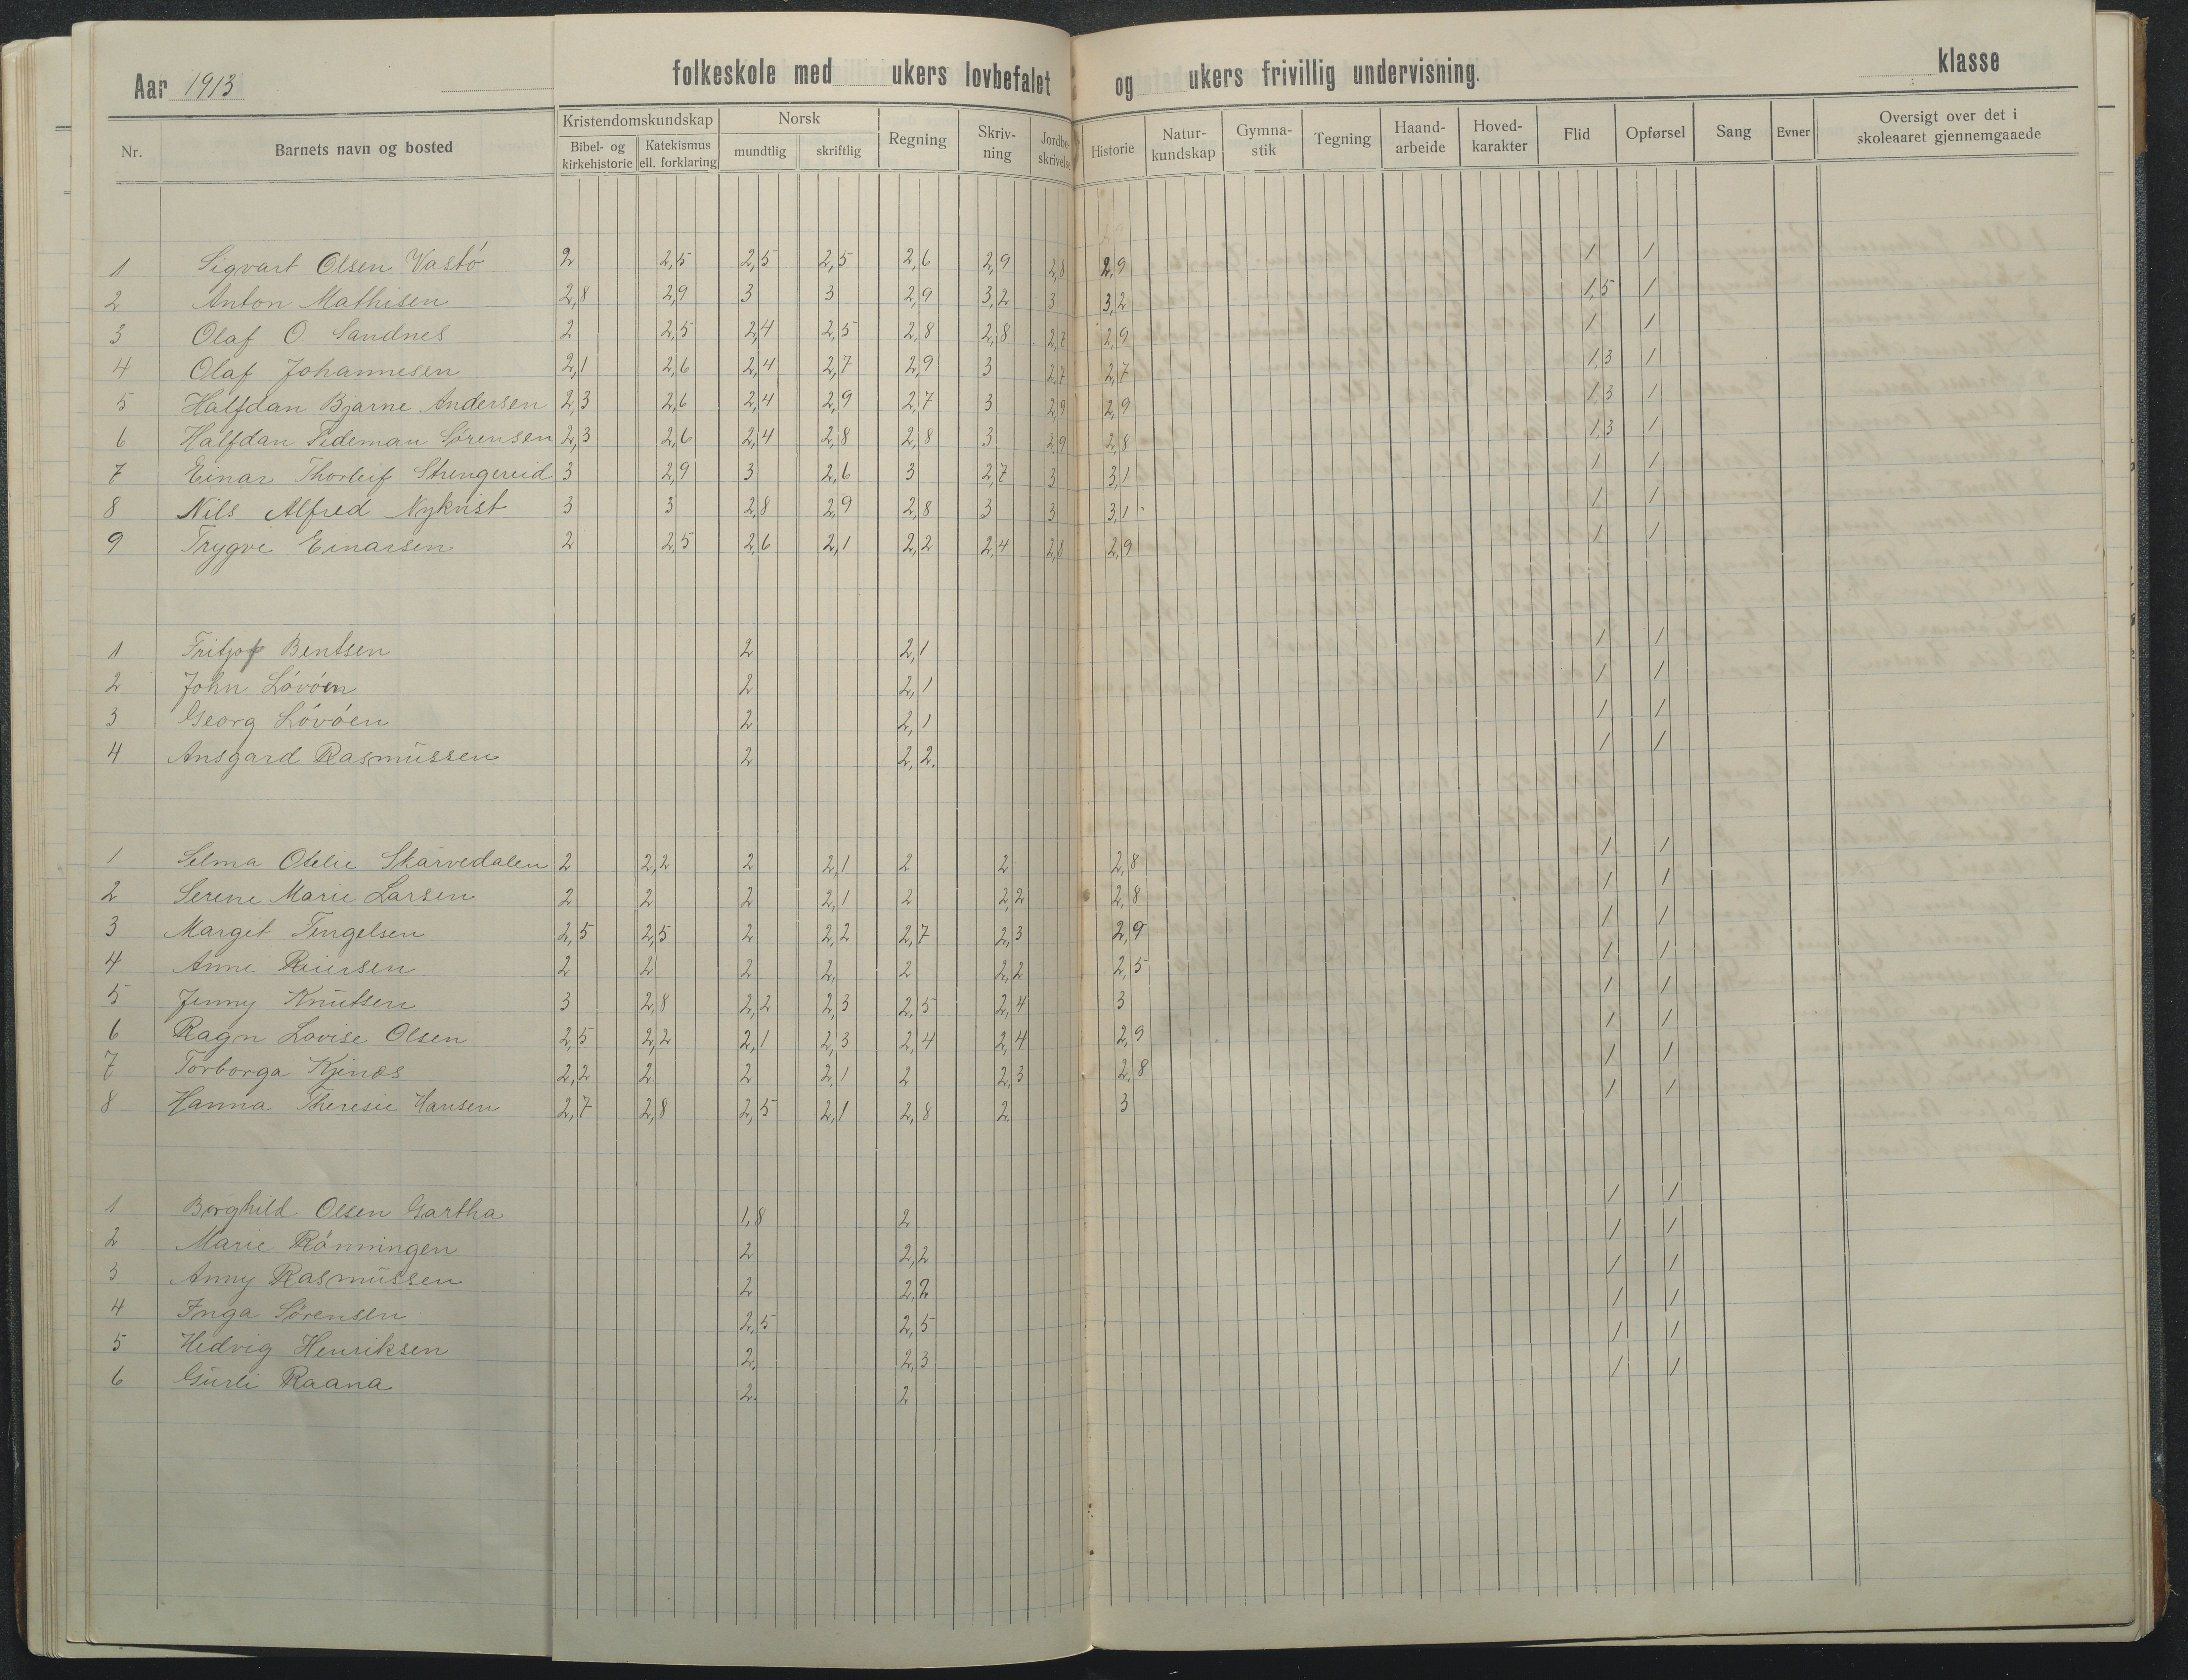 Aar 1913 folkeskole med ukers lovbefalet og ukers frivillig undervisning. klasse
Nr. Barnets navn og bosted Kristendomskundskap Bibel- og kirkehistorie Katekismus ell. forklaring Norsk mundtlig skriftlig Regning Skriv-ning Jordbe-skrivelse Historie Natur-kundskap Gymna-stik Tegning Haand-arbeide Hoved-karakter Flid Opførsel Sang Evner Oversigt over det i skoleaaret gjennemgaaede
1 Sigvart Olsen Vastö 2 2,5 2,5 2,5 2,6 2,9 2,8 2,9 1 1
2 Anton Mathisen 2,8 2,9 3 3 2,9 3,2 3 3,2 1,5 1
3 Olaf O. Sandnes 2 2,5 2,4 2,5 2,8 2,8 2,7 2,9 1 1
4 Olaf Johannesen 2,1 2,6 2,4 2,7 2,9 3 2,7 2,7 1,3 1
5 Halfdan Bjarne Andersen 2,3 2,6 2,4 2,9 2,7 3 2,9 2,9 1,3 1
6 Halfdan Tideman Sørensen 2,3 2,6 2,4 2,8 2,8 3 2,9 2,8 1,3 1
7 Einar Thorleif Strengereid 3 2,9 3 2,6 3 2,7 3 3,1 1 1
8 Nils Alfred Nykvist 3 3 2,8 2,9 2,8 3 3 3,1 1 1
9 Trygve Einarsen 2 2,5 2,6 2,1 2,2 2,4 2,8 2,9 1 1
1 Fritjof Bentsen 2 2,1 1 1
2 John Lóvóen 2 2,1 1 1
3 Georg Lóvóen 2 2,1 1 1
4 Ansgard Rasmussen 2 2,2. 1 1
1 Selma Otelie Skarvedalen 2 2,2 2 2,1 2 2 2,8 1 1
2 Serene Marie Larsen 2 2 2 2,1 2 2,2 2,8 1 1
3 Margit Tengelsen 2,5 2,5 2 2,2 2,7 2,3 2,9 1 1
4 Anne Reiersen 2 2 2 2, 2 2,2 2,5 1 1
5 Jenny Knutsen 3 2,8 2,2 2,3 2,5 2,4 3 1 1
6 Ragn Lovise Olsen 2,5 2,2 2,1 2,3 2,4 2,4 2,9 1 1
7 Torborga Kjenæs 2,2 2 2 2,1 2 2,3 2,8 1 1
8 Hanna Theresie Hansen 2,7 2,8 2,5 2,1 2,8 2. 3 1 1
1 Borghild Olsen Gartha 1,8 2 1 1
2 Marie Rönningen 2 2,2 1 1
3 Anny Rasmussen 2 2,2 1 1
4 Inga Sörensen 2,5 2,5 1 1
5 Hedvig Henriksen 2. 2,3 1 1
6 Gurli Raana 2. 2 1 1